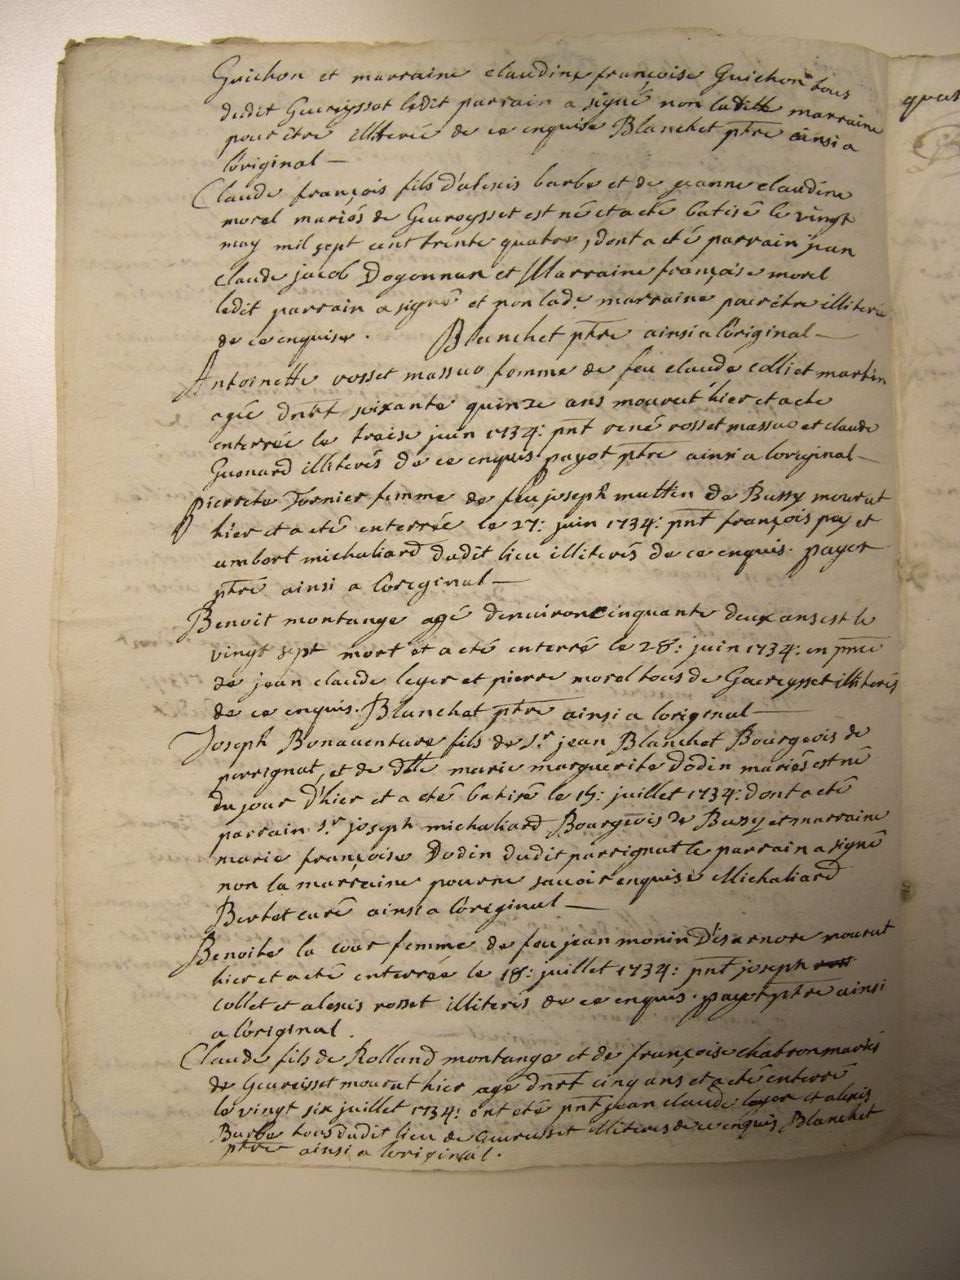 Guichon et marraine claudine françoise Guichon tous
dudit Geureysset ledit parrain a signé non ladite marraine
pour être illiterée de ce enquise Blanchet ptre ainsi a
l'original —
Claude françois fils d'alexis barbe et de jeanne claudine
morel mariés de Geureysset est né et a été batisé le vingt
may mil sept cent trente quatre, dont a été parrain jean
claude jacob Dogonnan et Marraine françoise morel
ledit parrain a signé et non lade marraine pour être illiterée
de ce enquise. Blanchet ptre ainsi a l'original —
Antoinette rosset massuo femme de feu claude colliet martin
agée dnrt soixante quinze ans mourut hier et a été
enterrée le traise juin 1734: pnt rené rosset massuo et claude
Guenard illiterés de ce enquis payot ptre ainsi a l'original —
Pierrete Tornier femme de feu joseph muttin de Bussy mourut
hier et a été enterrée le 27: juin 1734: pnt françois pay et
umbert michaliard dudit lieu illiterés de ce enquis. payot
ptre ainsi a l'original —
Benoit montange agé denviron cinquante deux ans est le
vingt sept mort et a été enterré le 28: juin 1734: en pnce
de jean claude leyer et pierre morel tous de Geureysset illiterés
de ce enquis. Blanchet ptre ainsi a l'original —
Joseph Bonaventure fils de Sr. jean Blanchet Bourgeois de
perrignat, et de dlle marie marguerite Dodin mariés est né
du jour d'hier et a été batisé le 15: juillet 1734: dont a été
parrain Sr. joseph michaliard Bourgeois de Bussy et marraine
marie françoise Dodin dudit parrignat le parrain a signé
non la marraine pour ne savoir enquise Michaliard
Bertet curé ainsi a l'original —
Benoite la cour femme de feu jean monin D'esarnore mourut
hier et a été enterrée le 18: juillet 1734: pnt joseph
collet et alexis rosset illiterés de ce enquis. payot ptre ainsi
a l'original.
Claude fils de Rolland montange et de françoise chatron mariés
de Geureisset mourut hier agé dnrt cinq ans et a été enterré
le vingt six juillet 1734: ont été pnt jean claude leyer et alexis
Barbe tous dudit lieu de Geureisset illiterés de ce enquis, Blanchet
ptre ainsi a l'original.